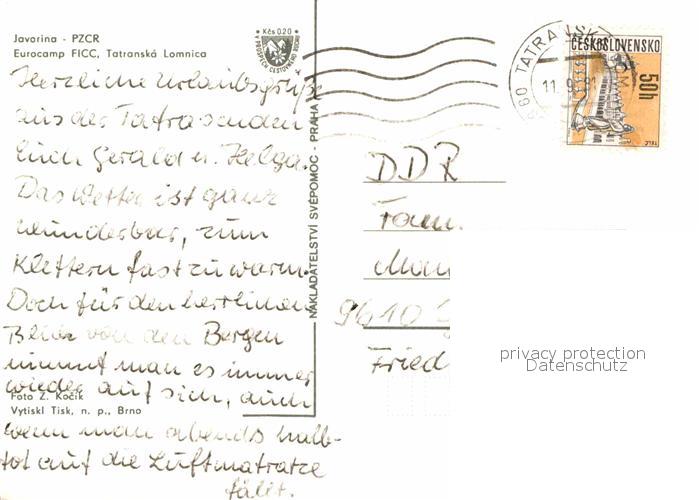 Javorina - PZCR
Eurocamp FICC, Tatranská Lomnica
Kčs 0,20
Herzliche Urlaubsgrüße
aus der Tatra senden
Euch Gerald u. Helga.
Das Wetter ist ganz
wunderbar, zum
Klettern fast zu warm.
Doch für den herrlichen
Blick von den Bergen
nimmt man es immer
wieder auf sich, auch
wenn man abends halb-
tot auf die Luftmatratze
fällt.
Foto Z. Kočík
Vytiskl Tisk, n. p., Brno
NAKLADATELSTVÍ SVÉPOMOC - PRAHA
60 TATRANSK
11.9.
ČESKOSLOVENSKO
50h
TELČ
DDR
Fam.
9610
Fried
privacy protection
Datenschutz